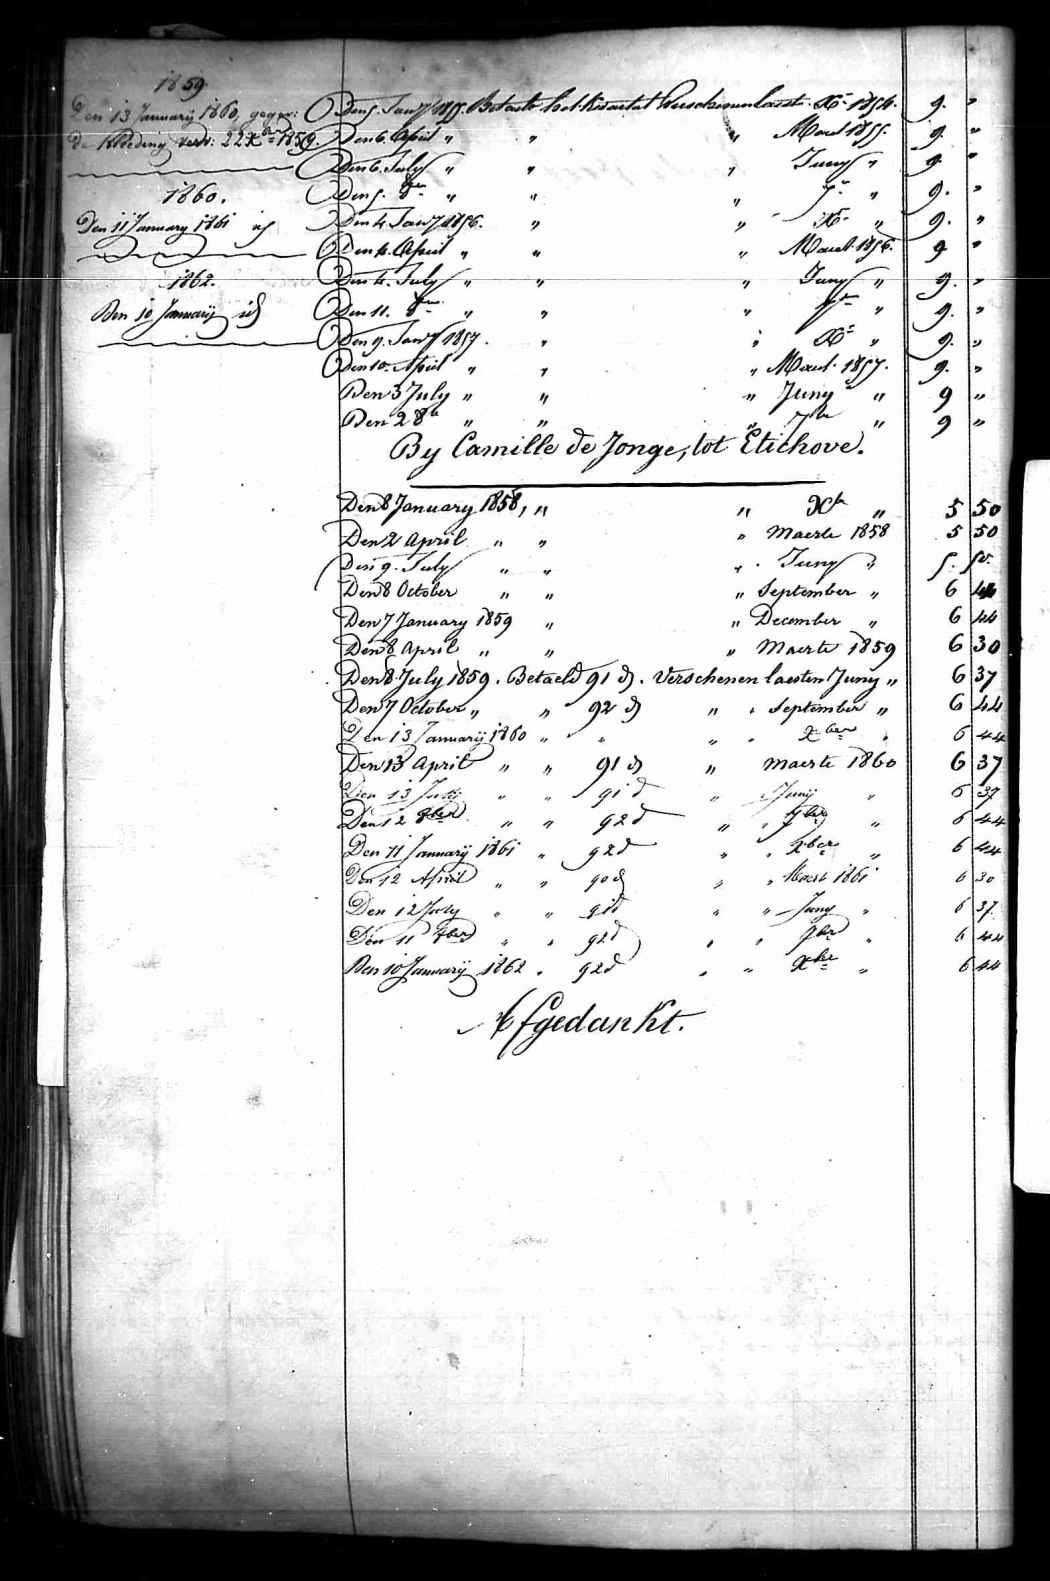 1859
Den 13 Januarij 1860, gegev:
de Kleeding verv: 22 Xber 1859.
1860.
Den 11 January 1861 id
1862.
Den 10 Januarij id
Den 5. Jany 1855. Betaelt het kwartael Verschenen laest. Xbr 1854. 9. "
Den 6. April " " " Maert 1855. 9. "
Den 6. July " " " Juny " 9. "
Den 5. 8ber " " " 7br " 9. "
Den 4. Jany 1856. " " Xbr " 9. "
Den 4. April " " " Maert 1856. 9 "
Den 4. July " " " Juny " 9. "
Den 11. 8ber " " " 7br " 9. "
Den 9. Jany 1857. " " Xbr " 9. "
Den 10. April " " " Maert 1857. 9. "
Den 3 July " " " Juny " 9 "
Den 2 8b " " " 7br " 9 "
By Camille de Jonge, tot Etichove.
Den 8 January 1858, " " Xbr " 5 50
Den 2 April " " " Maerte 1858 5 50
Den 9. July " " " Juny " 5. 50.
Den 8 October " " " September " 6 44
Den 7 January 1859 " " December " 6 44
Den 8 April " " " Maerte 1859 6 30
Den 8 July 1859. Betaeld 91 d. Verschenen laesten Juny " 6 37
Den 7 October " " 92 d " " September " 6 44
Den 13 Januarij 1860 " " " " Xber " 6 44
Den 13 April " " 91 d " Maerte 1860 6 37
Den 13 July " " 91 d " Junij " 6 37
Den 12 8ber " " 92 d " " 7ber " 6 44
Den 11 Januarij 1861 " 92 d " " Xber " 6 44
Den 12 April " " 90 d " " Maert 1861 6 30
Den 12 July " " 91 d " " Juny " 6 37
Den 11 8ber " " 92 d " " 7ber " 6 44
Den 10 Januarij 1862 " 92 d " " Xber " 6 44
Afgedankt.